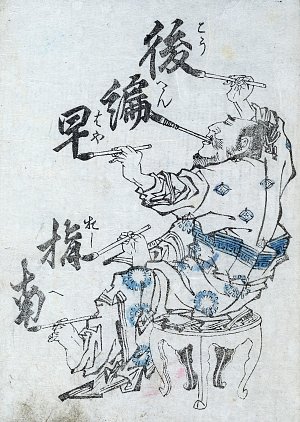 後編早
こうへんはや
指南
おしへ